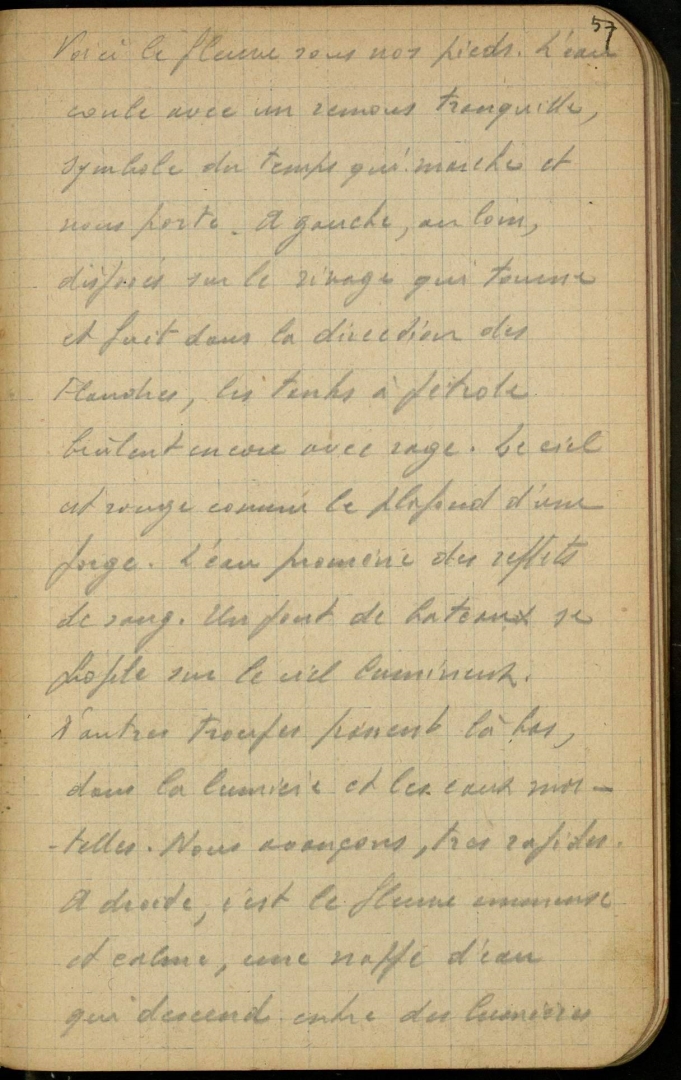 57
Voici le fleuve sous nos pieds. L'eau
coule avec un remous tranquille,
symbole du temps qui marche et
nous porte. A gauche, au loin,
disposés sur le rivage qui tourne
et fuit dans la direction des
Flandres, les tanks à pétrole
brûlent encore avec rage. Le ciel
est rouge comme le plafond d'une
forge. L'eau promène des reflets
de sang. Un pont de bateaux se
profile sur le ciel lumineux.
D'autres troupes passent là bas,
dans la lumière et les eaux mor-
-telles. Nous avançons, très rapides.
A droite, c'est le fleuve immense
et calme, une nappe d'eau
qui descend entre des lumières